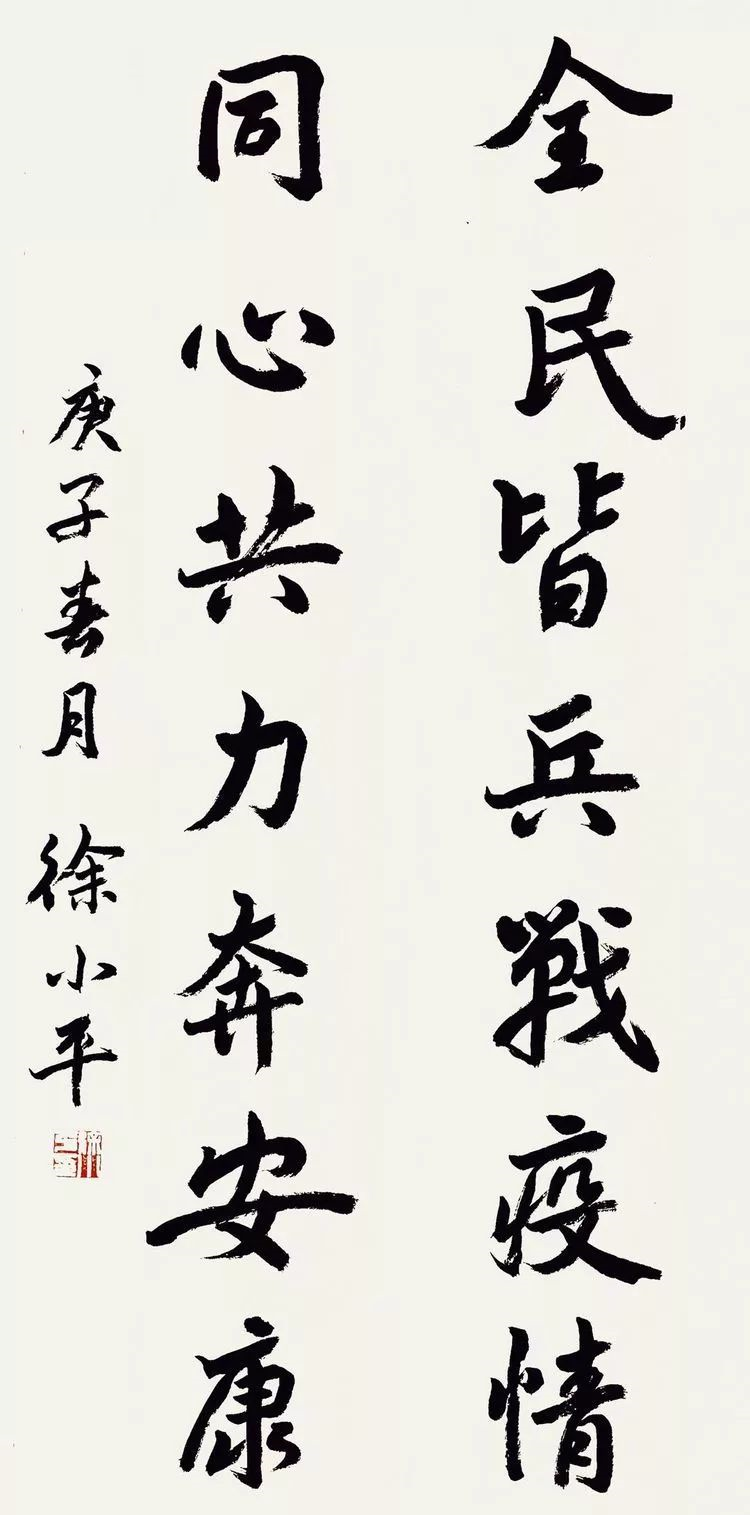 全民皆兵戰疫情
同心共力奔安康
庚子春月 徐小平